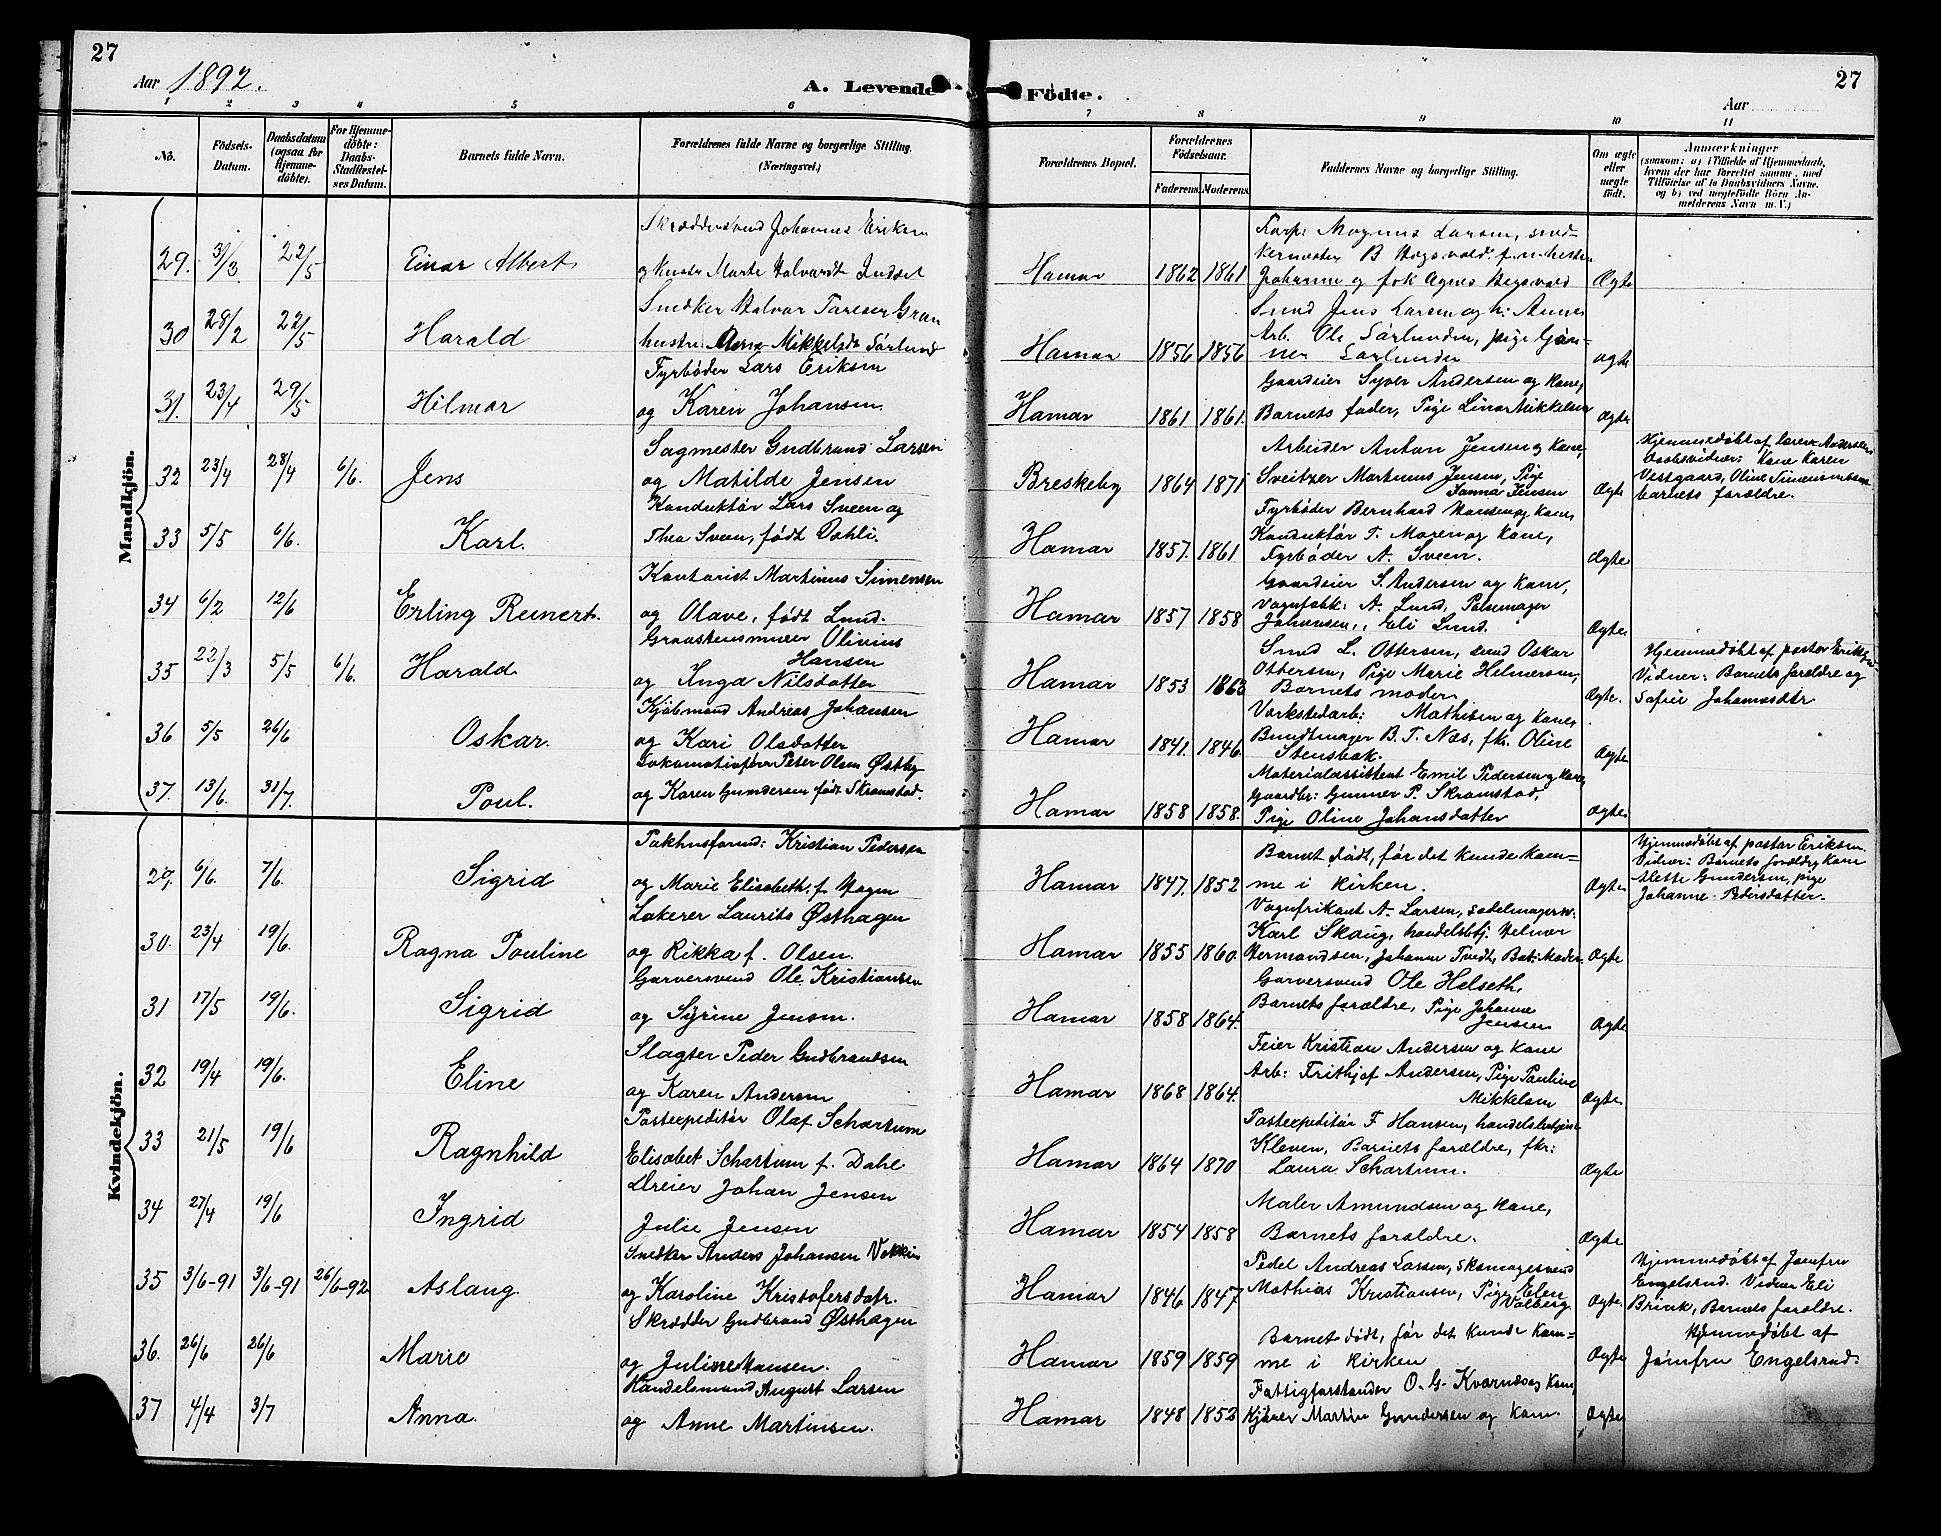 27
Aar 1892.
A. Levende Fødte.
27
Aar
1 2 3 4 5 6 7 8 9 10 11
No.
Fødsels-Datum.
Daabsdatum (ogsaa for Hjemme-døbte).
For Hjemme-døbte: Daabs-Stadfæstel-ses Datum.
Barnets fulde Navn.
Forældrenes fulde Navne og borgerlige Stilling.
(Næringsvei.)
Forældrenes Bopæl.
Forældrenes Fødselsaar.
Faderens. Moderens.
Faddernes Navne og borgerlige Stilling.
Om ægte eller uægte født.
Anmærkninger
(saasom: a) i Tilfælde af Hjemmedaab, hvem der har forrettet samme, med Tilføielse af to Daabsvidners Navne, og b) ved uægtefødte Børn An-melderens Navn m. V.)
Mandkjön.
29. 31/3 22/5 Einar Albert
Skræddersvend Johannes Eriksen
og hustr Marte Halvardt Indset
Hamar 1862 1861
Korp: Magnus Larsen, snd-
kermester B Hegsvold f. n. hustru
Johanne og frk Agnes Hegsvold
Ægte
30 28/2 22/5 Harald
Snedker Halvor Taresen Gran
hustru: Anne Mikkelsdt Sørlund
Hamar 1856 1856
Smed Jens Larsen og h: Anne
Arb. Ole Sørlunden, pige Gun-
ner Sørlunden
ægte
31. 23/4 29/5 Hilmar
Fyrbøder Lars Eriksen
og Karen Johansen.
Hamar 1861 1861.
Gaardeier Syver Andersen og kone,
Barnets fader, Pige Lina Mikkelsen
Ægte
32 23/4 28/4 6/6. Jens
Sagmester Gudbrand Larsen
og Matilde Jensen
Breskeby 1864 1871
Arbeider Anton Jensen og kone,
Sveitzer Martinus Jensen, Pige
Janna Jensen
Ægte
Hjemmedøbt af lærer Andersen
Daabsvidner: Kone Karen
Vestgaard, Oline Simensen samt
barnets forældre.
33 5/5 6/6. Karl.
Konduktør Lars Sveen og
Thea Sveen, født Dahli.
Hamar 1857. 1861
Fyrbøder Bernhard Hansen og kone,
Konduktør T. Moren og kone,
Fyrbøder A. Sveen.
Ægte
34 6/2 12/6 Erling Reinert.
Kontorist Martinus Simensen
og Olave, født Lund.
Hamar 1857 1858
Gaardeier S. Andersen og kone,
Vognfabk: A. Lund, Pølsemager
Johansen, Eli Lund.
Ægte
35 22/3 5/5 6/6. Harald
Graastensmurer Olivius
Hansen
og Inga Nilsdatter
Hamar 1853 1863
Smed L. Ottersen, smed Oskar
Ottersen, Pige Marie Helmersen,
Barnets moder
Ægte.
Hjemmedøbt af pastor Eriksen
Vidner: Barnets forældre og
Sofie Johannesdtr
36 5/5 26/6 Oskar.
Kjøbmand Andreas Johansen
og Kari Olsdatter
Hamar 1841. 1846.
Værkstedarb: Mathisen og kone,
Bundtmager B. T. Næs, fk. Oline
Stensbak.
Ægte
37. 13/6. 31/7. Poul.
Lokomotivfører Peter Olsen Østby
og Karen Gundersen født Skramstad.
Hamar 1858 1858.
Materialassistent Emil Pedersen og kone
Gaardbr: Gunner P. Skramstad,
Pige Oline Johansdatter
Ægte
Kvindekjön.
29. 6/6. 7/6. Sigrid
Pakhusformd: Kristian Pedersen
og Marie Elisabeth f. Hagen
Hamar 1847. 1852
Barnet dødt, før det kunde kom-
me i kirken.
Ægte
Hjemmedøbt af pastor Eriksen.
Vidner: Barnets forældre, kone
Alette Gundersen, pige
Johanne Pedersdatter.
30. 23/4 19/6. Ragna Pouline
Lakerer Laurits Østhagen
og Rikka f. Olsen.
Hamar 1855 1860.
Vognfrikant A. Larsen, sadelmagersv.
Karl Skaug, handelsbtj. Helmer
Hermandsen, Johanne Tvedt, Bar: Moder.
Ægte
31 17/5 19/6. Sigrid
Garversvend Ole Kristiansen
og Syrine Jensen.
Hamar 1858 1864.
Garversvend Ole Helseth,
Barnets forældre, Pige Johanne
Jensen
Ægte
32 19/4 19/6. Eline
Slagter Peder Gudbrandsen
og Karen Andersen
Hamar 1868 1864.
Feier Kristian Andersen og kone
Arb: Frithjof Andersen, Pige Pauline
Mikkelsen
Ægte
33 21/5 19/6 Ragnhild
Postexpeditør Olaf Schartum
Elisabet Schartum f. Dahl
Hamar 1864 1870
Postexpeditør F Hansen, handelsbetjent
Kleven, Barnets forældre, fkr:
Laura Schartum.
Ægte
34 27/4 19/6 Ingrid
Dreier Johan Jensen
Julie Jensen
Hamar 1854 1858
Maler Amundsen og kone,
Barnets forældre.
Ægte
35 3/6-91 3/6-91 26/6-92 Aslaug.
Snedker Anders Johansen Vekkin
og Karoline Kristofersdatr.
Hamar 1846 1847
Pedel Andreas Larsen, skomagersvend
Mathias Kristiansen, Pige Elen
Volberg.
Ægte
Hjemmedøbt af Jomfru
Engelsrud. Vidner Eli
Brink, Barnets forældre.
36. 26/6 26/6 Marie
Skrædder Gudbrand Østhagen
og Juline Hansen.
Hamar 1859 1859
Barnet dødt, før det kunde kom=
me i kirken
Ægte
Hjemmedøbt af
Jomfru Engelsrud.
37 4/4 3/7 Anna.
Handelsmand August Larsen
og Anne Martinsen.
Hamar 1848 1852
Fattigforstander O. G. Kvarnæs og kone,
Kjører Martin Gundersen og kone.
Ægte